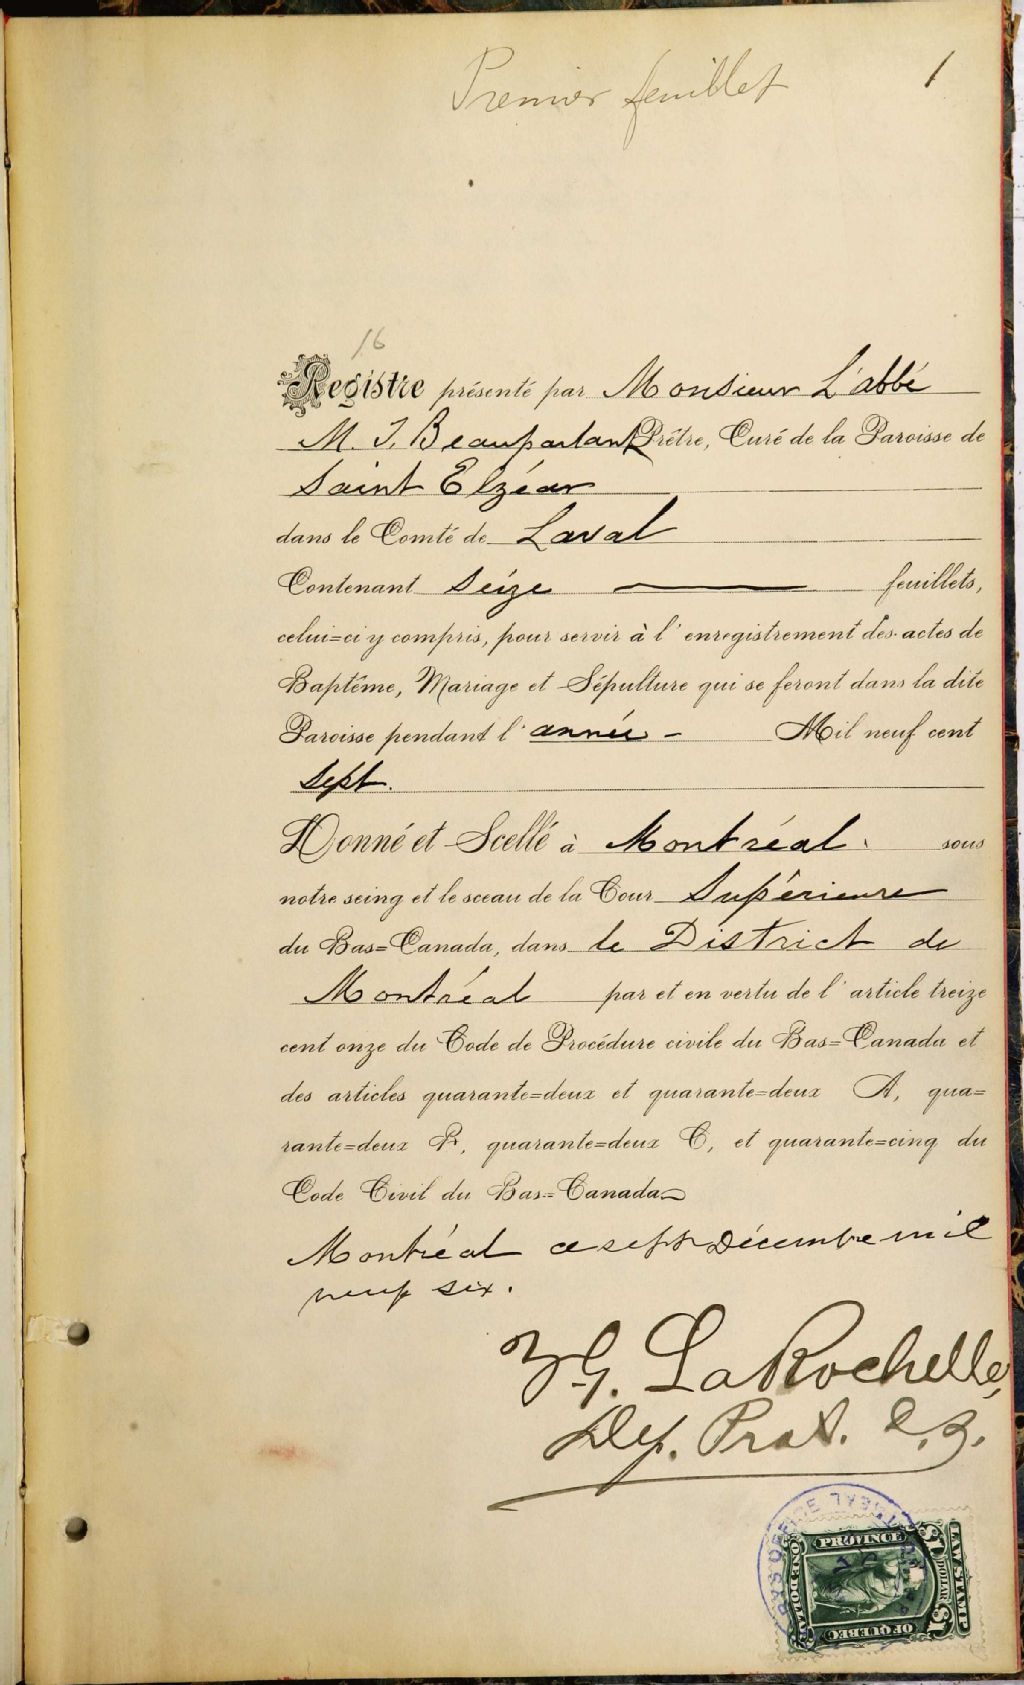 Premier feuillet
1
16
Registre présenté par Monsieur L'abbé
M. J. Beauparlant Prêtre, Curé de la Paroisse de
Saint Elzéar
dans le Comté de Laval
Contenant Seize feuillets,
celui=ci y compris, pour servir à l'enregistrement des actes de
Baptême, Mariage et Sépulture qui se feront dans la dite
Paroisse pendant l'année - Mil neuf cent
Sept.
Donné et Scellé à Montréal sous
notre seing et le sceau de la Cour Supérieure
du Bas=Canada, dans le District de
Montréal par et en vertu de l'article treize
cent onze du Code de Procédure civile du Bas=Canada et
des articles quarante=deux et quarante=deux A, qua=
rante=deux B, quarante=deux C, et quarante=cinq du
Code Civil du Bas=Canada
Montréal ce sept Décembre mil
neuf six.
G. LaRochelle,
Dep. Prot. C.S.
LAW STAMP
$1 DOLLAR $1
PROVINCE
OF QUEBEC
ONE DOLLAR